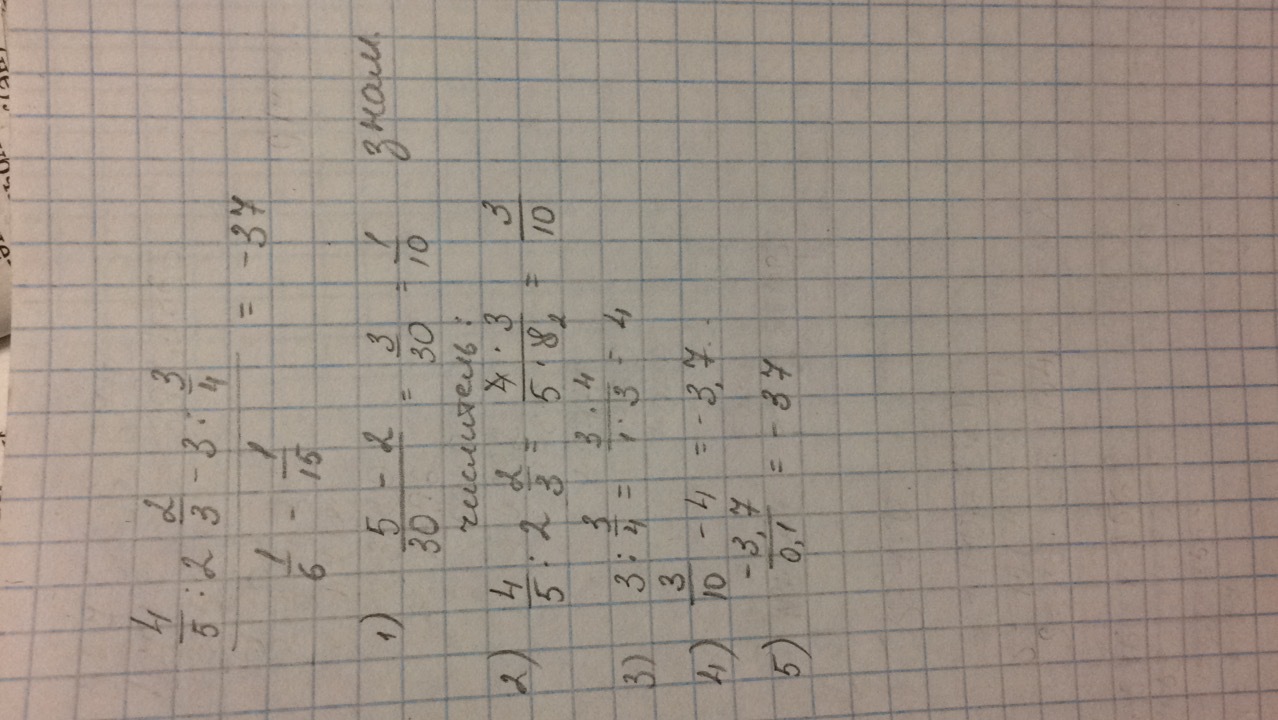 4/5 : 2 2/3 - 3 : 3/4
1/6 - 1/15 = -37
1) 5 - 2/30 = 3/30 = 1/10 знам.
числитель:
2) 4/5 : 2 2/3 = 4 · 3/5 · 8 2 = 3/10
3) 3 : 3/4 = 3 · 4/1 · 3 = 4
4) 3/10 - 4 = -3,7.
5) -3,7/0,1 = -37